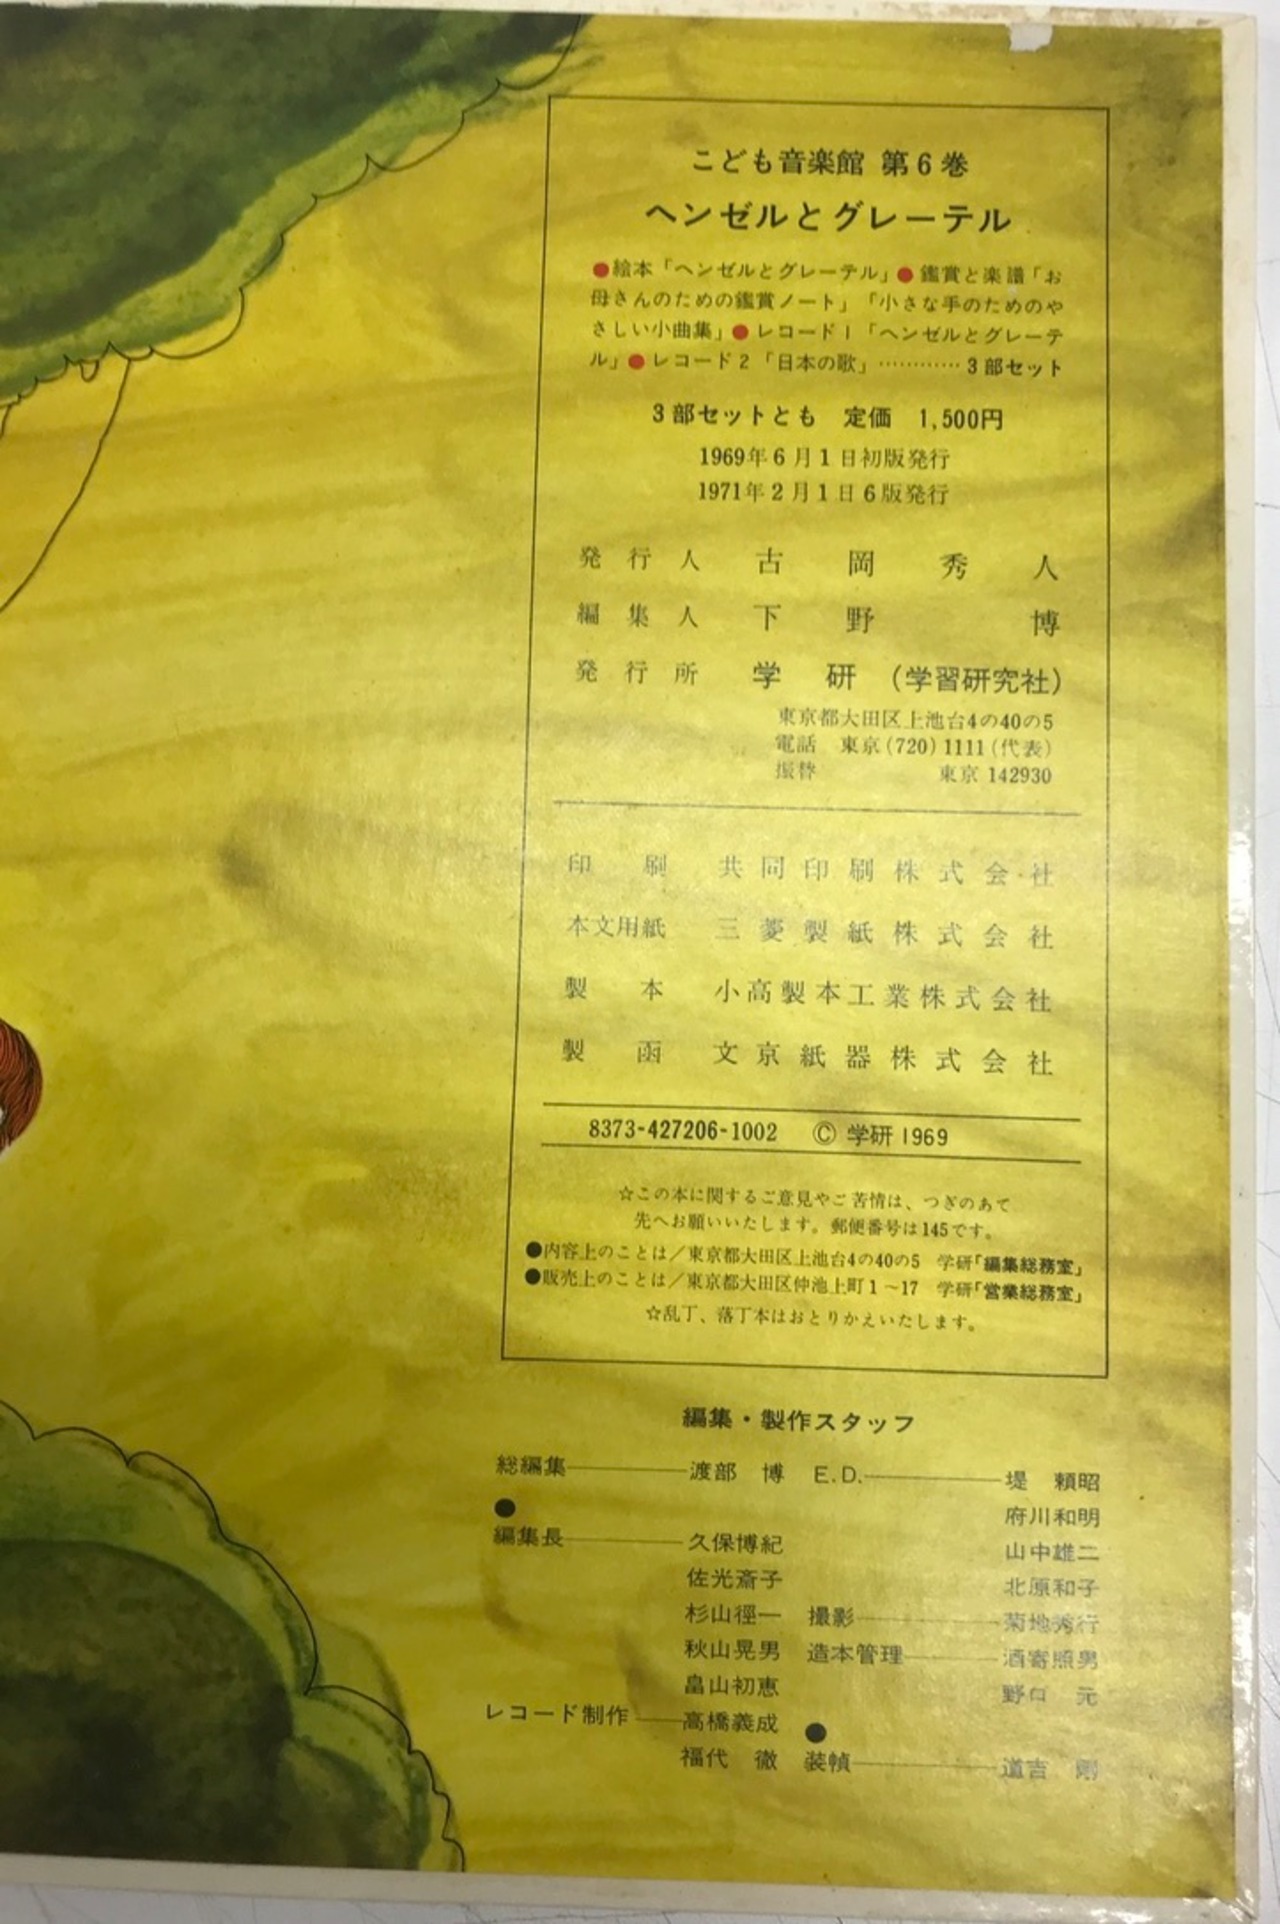 こども音楽館 第6巻
ヘンゼルとグレーテル
●絵本「ヘンゼルとグレーテル」●鑑賞と楽譜「お
母さんのための鑑賞ノート」「小さな手のためのや
さしい小曲集」●レコード1「ヘンゼルとグレーテ
ル」●レコード2「日本の歌」…………3部セット
3部セットとも 定価 1,500円
1969年6月1日初版発行
1971年2月1日6版発行
発行人 古岡秀人
編集人 下野博
発行所 学研（学習研究社）
東京都大田区上池台4の40の5
電話 東京(720)1111(代表)
振替 東京 142930
印刷 共同印刷株式会社
本文用紙 三菱製紙株式会社
製本 小高製本工業株式会社
製函 文京紙器株式会社
8373-427206-1002 Ⓒ 学研 1969
☆この本に関するご意見やご苦情は、つぎのあて
先へお願いいたします。郵便番号は145です。
●内容上のことは／東京都大田区上池台4の40の5 学研「編集総務室」
●販売上のことは／東京都大田区仲池上町1〜17 学研「営業総務室」
☆乱丁、落丁本はおとりかえいたします。
編集・製作スタッフ
総編集―――渡部 博 E.D.―――堤 頼昭
● 府川和明
編集長―――久保博紀 山中雄二
佐光斎子 北原和子
杉山徑一 撮影―――菊地秀行
秋山晃男 造本管理―――酒寄照男
畠山初恵 野口 元
レコード制作――高橋義成 ●
福代 徹 装幀―――道吉 剛